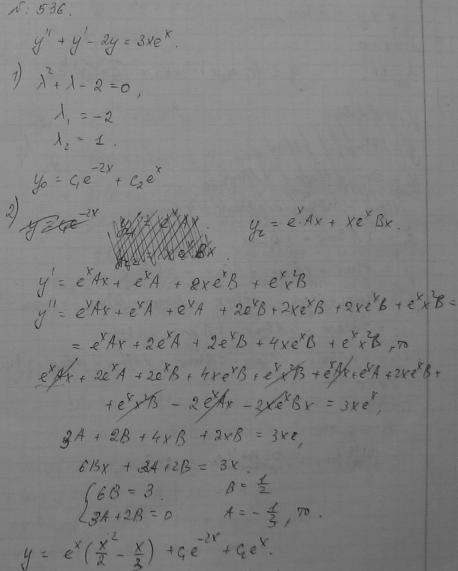 N: 536.
y'' + y' - 2y = 3xeˣ.
1) λ² + λ - 2 = 0,
λ₁ = -2
λ₂ = 1.
y₀ = c₁e⁻²ˣ + c₂eˣ
2) y₂ = eˣAx + xeˣBx.
y' = eˣAx + eˣA + 2xeˣB + eˣx²B
y'' = eˣAx + eˣA + eˣA + 2eˣB + 2xeˣB + 2xeˣB + eˣx²B =
= eˣAx + 2eˣA + 2eˣB + 4xeˣB + eˣx²B, то
eˣAx + 2eˣA + 2eˣB + 4xeˣB + eˣx²B + eˣAx + eˣA + 2xeˣB +
+ eˣx²B - 2eˣAx - 2xeˣBx = 3xeˣ,
3A + 2B + 4xB + 2xB = 3xe,
6Bx + 3A + 2B = 3x.
{ 6B = 3. B = 1/2
3A + 2B = 0 A = - 1/3, то.
y = eˣ(x²/2 - x/3) + c₁e⁻²ˣ + c₂eˣ.